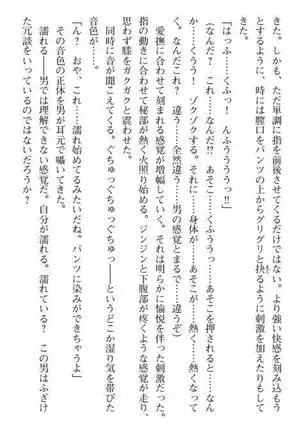 きた。しかも、ただ単調に指を前後させてくるだけではない。より強い快感を刻み込もう
とするように、時には膣口をパンツの上からグリグリと抉るように刺激を加えたりもして
くる。
「はっふ……くふっ！　んふぅぅぅっ!!」
（なんだ？　これ……なんだ!?　あそこ……くふううっ……あそこを押されると……なん
か……くうう！　ゾクゾクする。それに……身体が……あそこが……熱く……熱くなって
く。なんだこれ？　違う……全然違う……男の感覚とまるで……違うぞ）
愛撫に合わせて刻まれる感覚が増幅していく。それは明らかに愉悦を伴った刺激だった。
指の動きに合わせて秘部が熱く火照り始める。ジンジンと下腹部が疼くような感覚が走り、
思わず膝をガクガクと震わせた。
同時に音が聞こえてくる。ぐちゅっぐちゅっぐちゅっ――というどこか湿り気を帯びた
音色が……。
「ん？　おや、これ……濡れ始めてるみたいだね。パンツに染みができちゃうよ」
その音色の正体を男が耳元で囁いてきた。
濡れる――男では理解できない感覚だ。自分が濡れる。濡れている？　この男はふざけ
た冗談をいっているのではないだろうか？